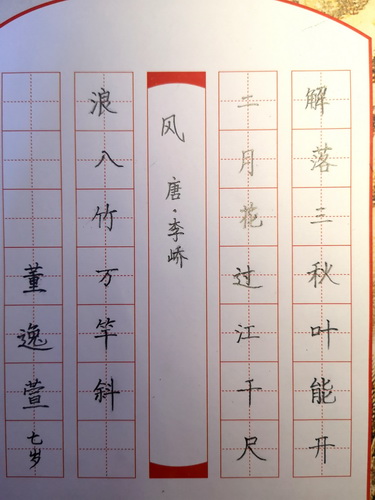 解落三秋叶能开
二月花过江千尺
风
唐·李峤
浪入竹万竿斜
董逸萱七岁